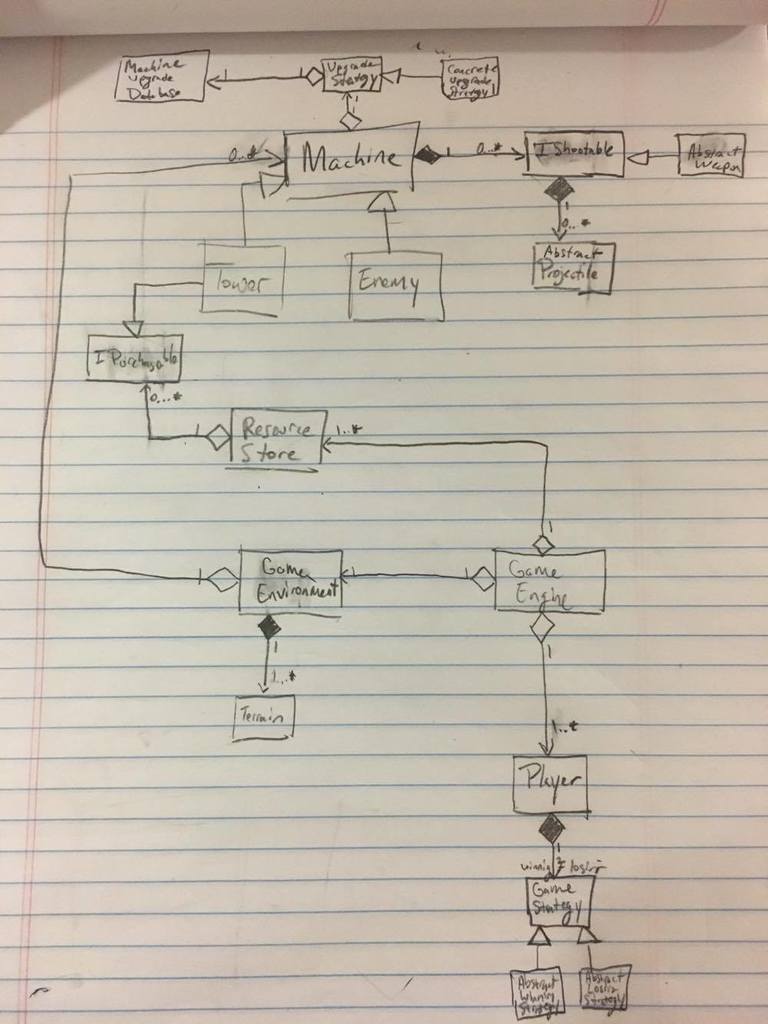 Machine
Upgrade
Database
1
1
Upgrade
Strategy
Concrete
Upgrade
Strategy
1
0..*
Machine
1
0..*
I Shootable
Abstract
Weapon
1
0..*
Tower
Enemy
Abstract
Projectile
I Purchasable
0...*
1
Resource
Store
1..*
1
1
Game
Environment
1
1
Game
Engine
1
1
1..*
Terrain
1..*
Player
1
winning
losing
Game
Strategy
Abstract
Winning
Strategy
Abstract
Losing
Strategy